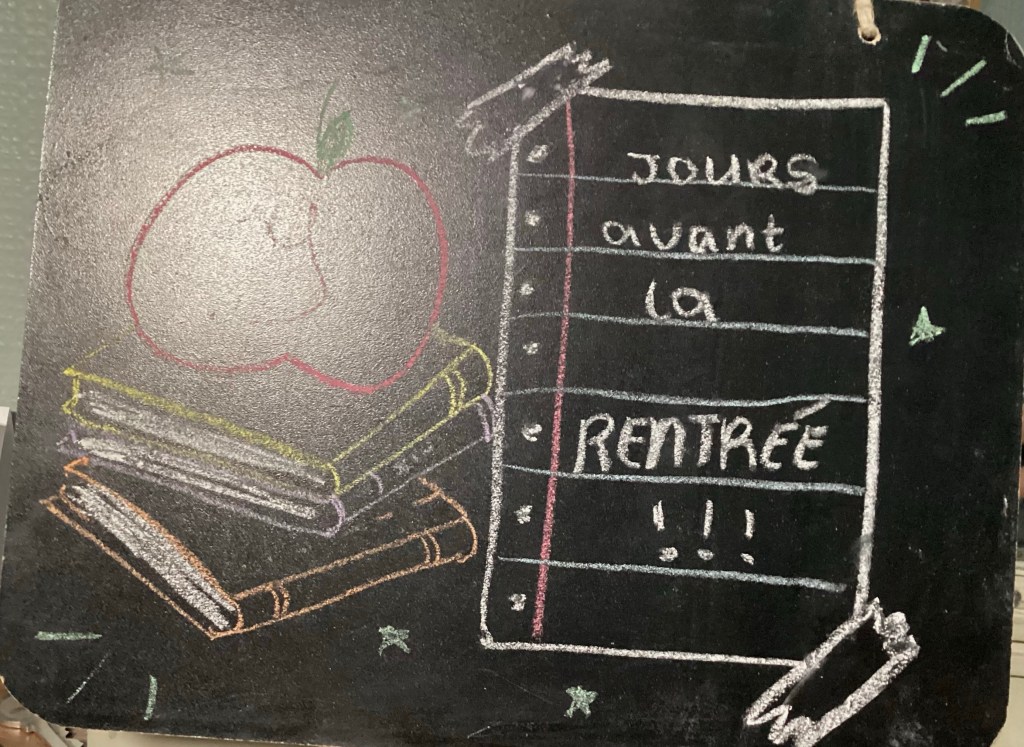 JOURS
avant
la
RENTRÉE
!!!